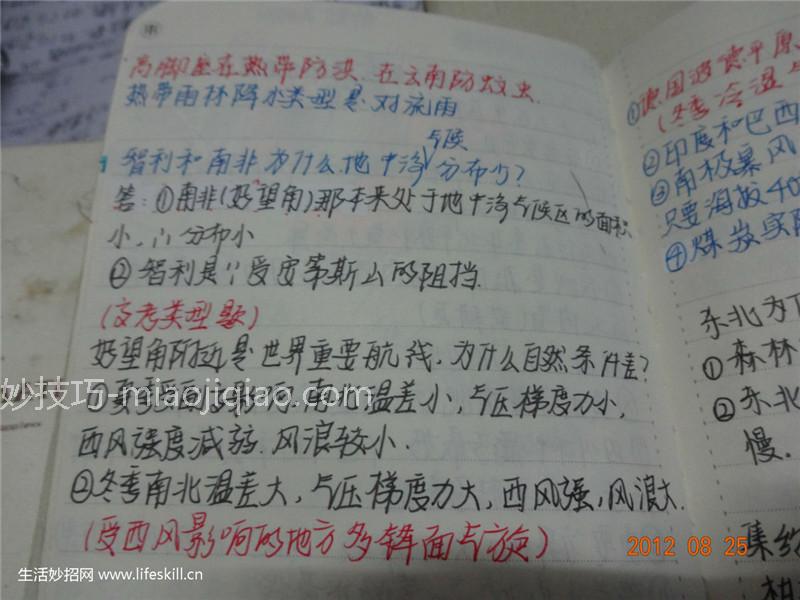 高脚屋在热带防洪.在云南防蚊虫.
热带雨林降水类型是 对流雨
智利和南非为什么地中海气候分布少?
答: ①南非(好望角)那本来处于地中海气候区的面积
小, ∵分布小
② 智利是∵受安第斯山的阻挡.
(高考类型题)
好望角附近是世界重要航线, 为什么自然条件差?
南北温差小, 气压梯度力小,
西风强度减弱. 风浪较小.
②冬季南北温差大, 气压梯度力大, 西风强, 风浪大.
(受西风影响的地方多锋面气旋)
①德国波德平原
(冬季冷湿
②印度和巴西
③南极暴风
只要海拔40
④煤炭实际
东北为
① 森林
② 东北
慢.
集约
柑
妙技巧-miaojiqiao.com
2012 08 25
生活妙招网 www.lifeskill.cn